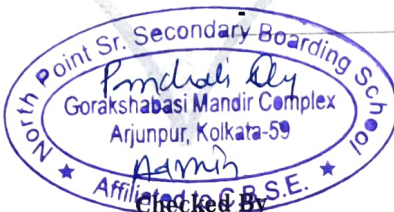 North Point Sr. Secondary Boarding School
Gorakshabasi Mandir Complex
Arjunpur, Kolkata-59
Admin
Affiliated to C.B.S.E.
Checked By